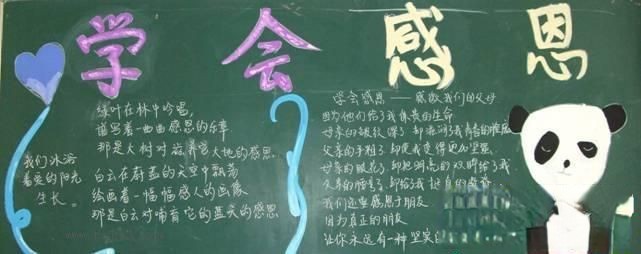 学会感恩
我们沐浴
着爱的阳光
生长
绿叶在林中吟唱,
谱写着一曲曲感恩的乐章
那是大树对滋养它大地的感恩.
白云在蔚蓝的天空中飘荡
绘画着一幅幅感人的画像
那是白云对哺育它的蓝天的感恩
学会感恩——感激我们的父母
因为他们给了我宝贵的生命
母亲的
父亲的手粗了 却使我变得更加坚强
母亲的眼花了 却把明亮的双眸给了我
父亲的 却给了我
我们还要感恩于朋友
因为真正的朋友
让你永远有一种坚实的